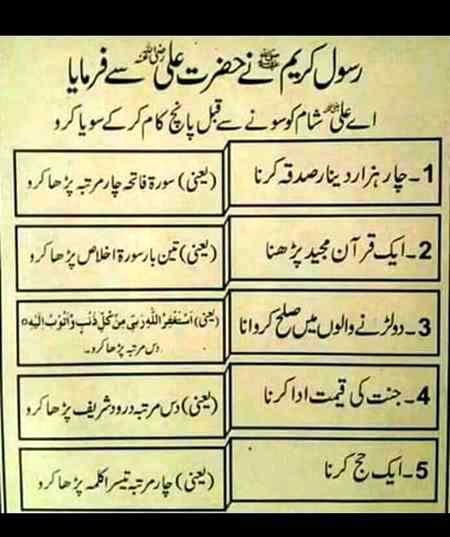 رسول کریم ﷺ نے حضرت علی رضی اللہ عنہ سے فرمایا
اے علی رضی اللہ عنہ شام کو سونے سے قبل پانچ کام کر کے سویا کرو
1۔ چار ہزار دینار صدقہ کرنا
(یعنی) سورۃ فاتحہ چار مرتبہ پڑھا کرو
2۔ ایک قرآن مجید پڑھنا
(یعنی) تین بار سورۃ اخلاص پڑھا کرو
3۔ دو لڑنے والوں میں صلح کروانا
(یعنی) اَسْتَغْفِرُ اللہَ رَبِّیْ مِنْ کُلِّ ذَنْبٍ وَّاَتُوْبُ اِلَیْہِ
دس مرتبہ پڑھا کرو۔
4۔ جنت کی قیمت ادا کرنا
(یعنی) دس مرتبہ درود شریف پڑھا کرو
5۔ ایک حج کرنا
(یعنی) چار مرتبہ تیسرا کلمہ پڑھا کرو